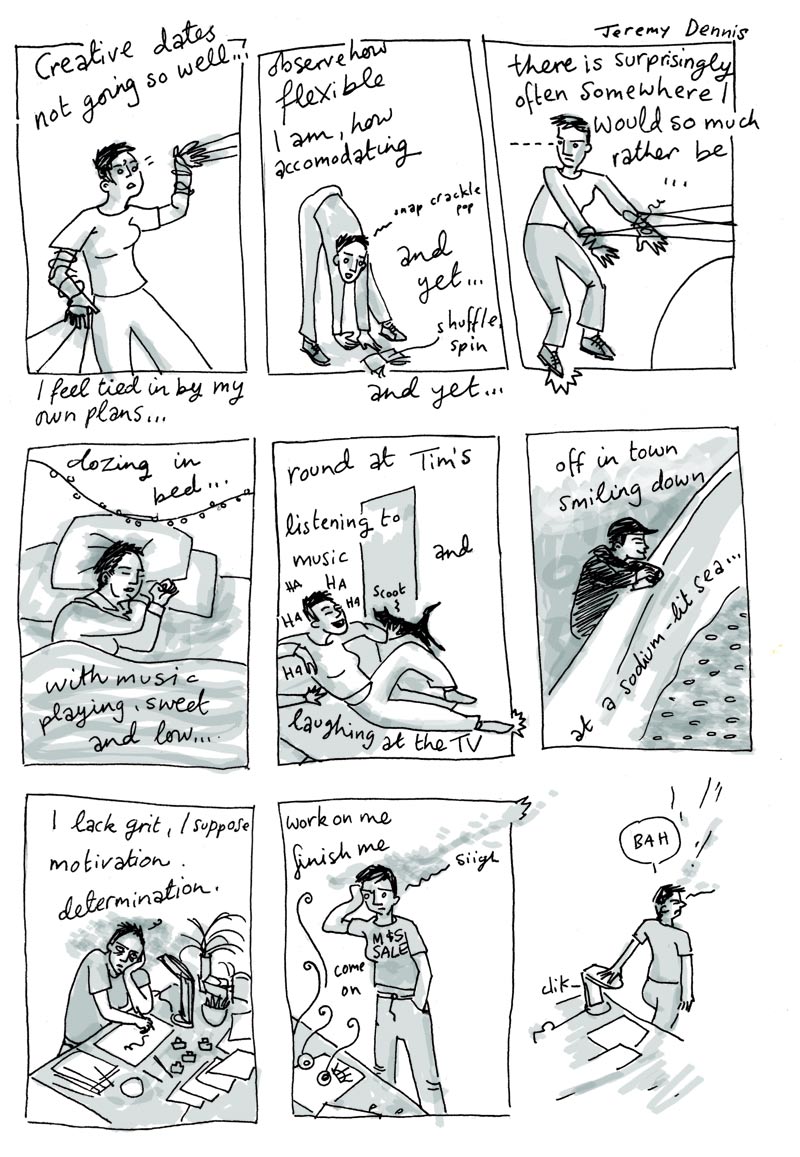 Jeremy Dennis
Creative dates
not going so well...
I feel tied in by my
own plans...
observe how
flexible
I am, how
accomodating
snap crackle
pop
and
yet...
shuffle
spin
and yet...
there is surprisingly
often somewhere I
would so much
rather be
...
dozing in
bed...
with music
playing, sweet
and low...
round at Tim's
listening to
music
and
HA
HA
HA
HA
HA
Scoot
laughing at the TV
off in town
smiling down
at a sodium-lit sea...
I lack grit, I suppose
motivation.
determination.
work on me
finish me
Siigh
M&S
SALE
come
on
BAH
clik